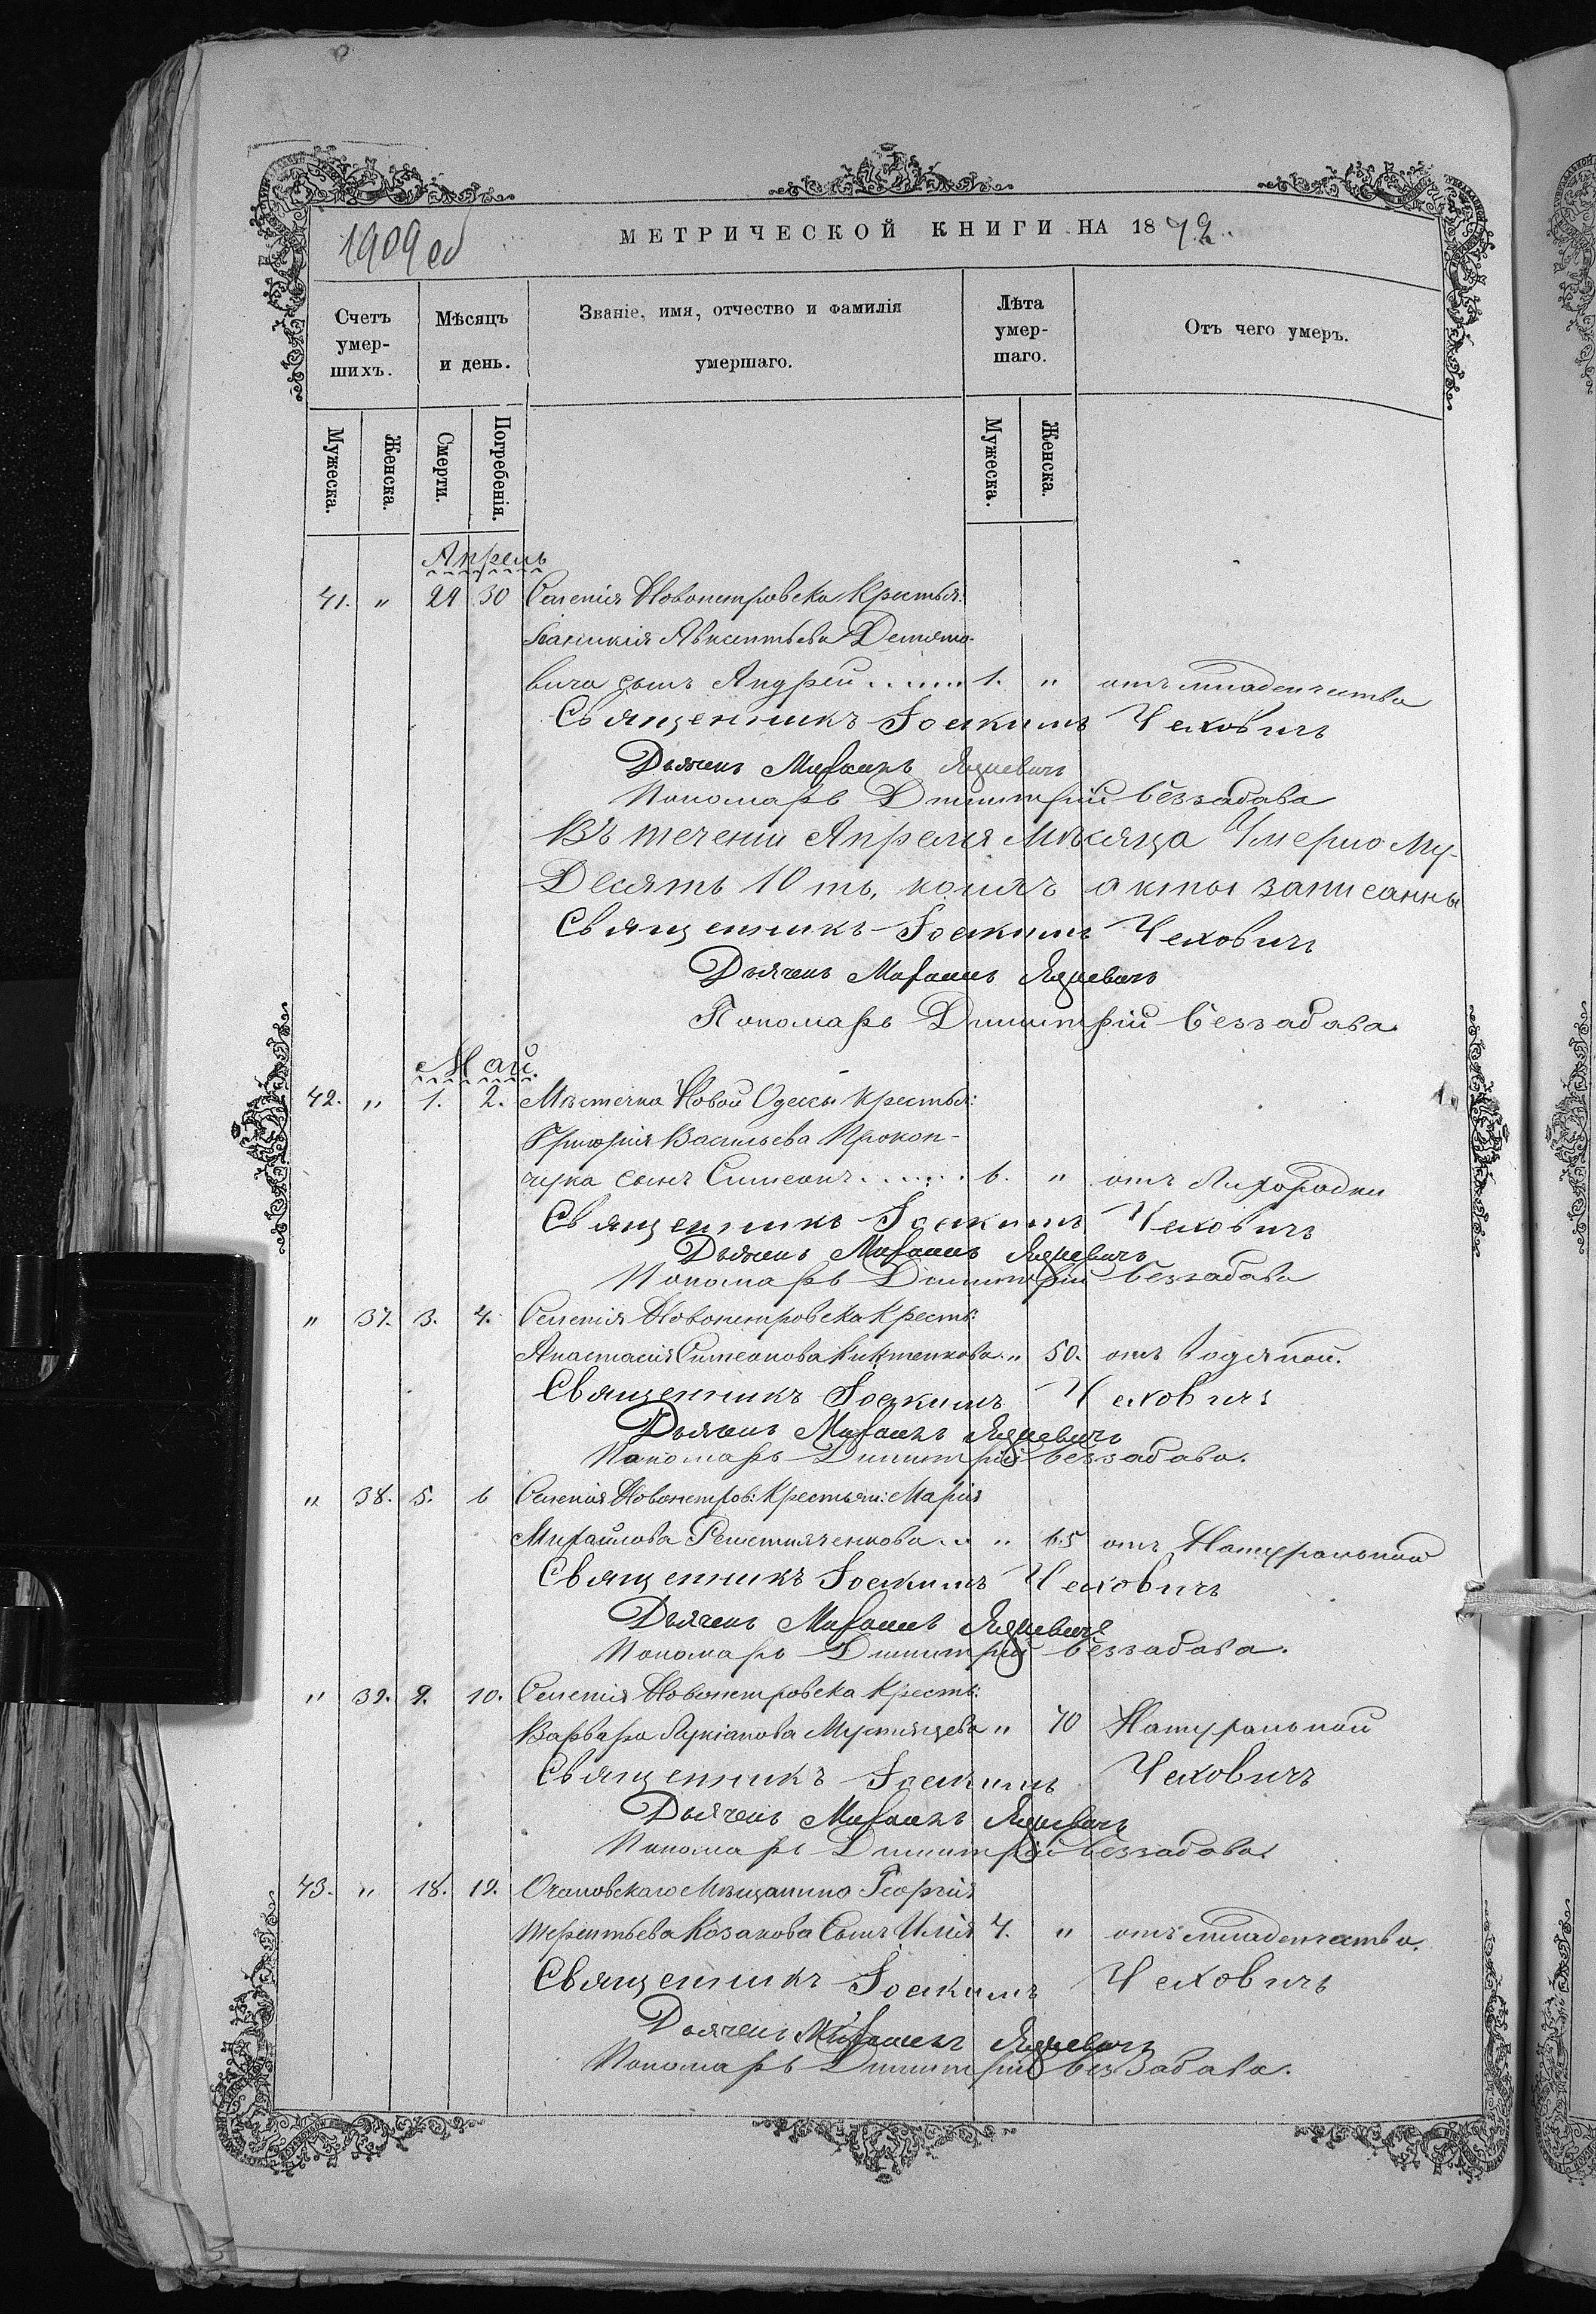 1909 об
МЕТРИЧЕСКОЙ КНИГИ НА 1872.
Счетъ умер-шихъ.
Мѣсяцъ и день.
Званіе, имя, отчество и фамилія умершаго.
Лѣта умер-шаго.
Отъ чего умеръ.
Мужеска. Женска. Смерти. Погребенія. Мужеска. Женска.
Апрель
41. " 29 30 Селенія Новопетровска Крестья:
Авксентьева
вича сынъ Андрей ........ 1. " отъ младенчества
Священникъ Іоакимъ Чехович
Дьячекъ Михаилъ
Пономарь Димитрій Беззабава
Въ течении Апреля Мѣсяца Умерло Му-
Десять 10 ть, коихъ акты записанны
Священникъ Іоакимъ Чеховичъ
Дьячекъ Михаилъ
Пономарь Димитрій Беззабава.
Май.
42. " 1. 2. Мѣстечка Новой Одессы Крестья:
Григорія Васильева Прокоп-
чука сынъ Симеонъ ....... 6. " отъ Лихорадки
Священникъ Іоакимъ Чеховичъ
Дьячекъ Михаилъ
Пономарь Димитрій Беззабава
" 37. 3. 4. Селенія Новопетровска Кресть:
Анастасія Симеонова " 50. отъ Водяной.
Священникъ Іоакимъ Чеховичъ
Дьячекъ Михаилъ
Пономарь Димитрій Беззабава.
" 38. 5. 6 Селенія Новопетров: Крестьян: Марія
Михайлова Решетняченкова .. " 65 отъ Натуральной
Священникъ Іоакимъ Чеховичъ
Дьячекъ Михаилъ
Пономарь Димитрій Беззабава.
" 39. 9. 10. Селенія Новопетровска Кресть:
Варвара Лукіанова " 70 Натуральной
Священникъ Іоакимъ Чеховичъ
Дьячекъ Михаилъ
Пономарь Димитрій Беззабава.
43. " 18. 19. Очаковскаго Мѣщанина Георгія
Терентьева Козакова Сынъ Илія " отъ младенчества.
Священникъ Іоакимъ Чеховичъ
Дьячекъ Михаилъ
Пономарь Димитрій Беззабава.